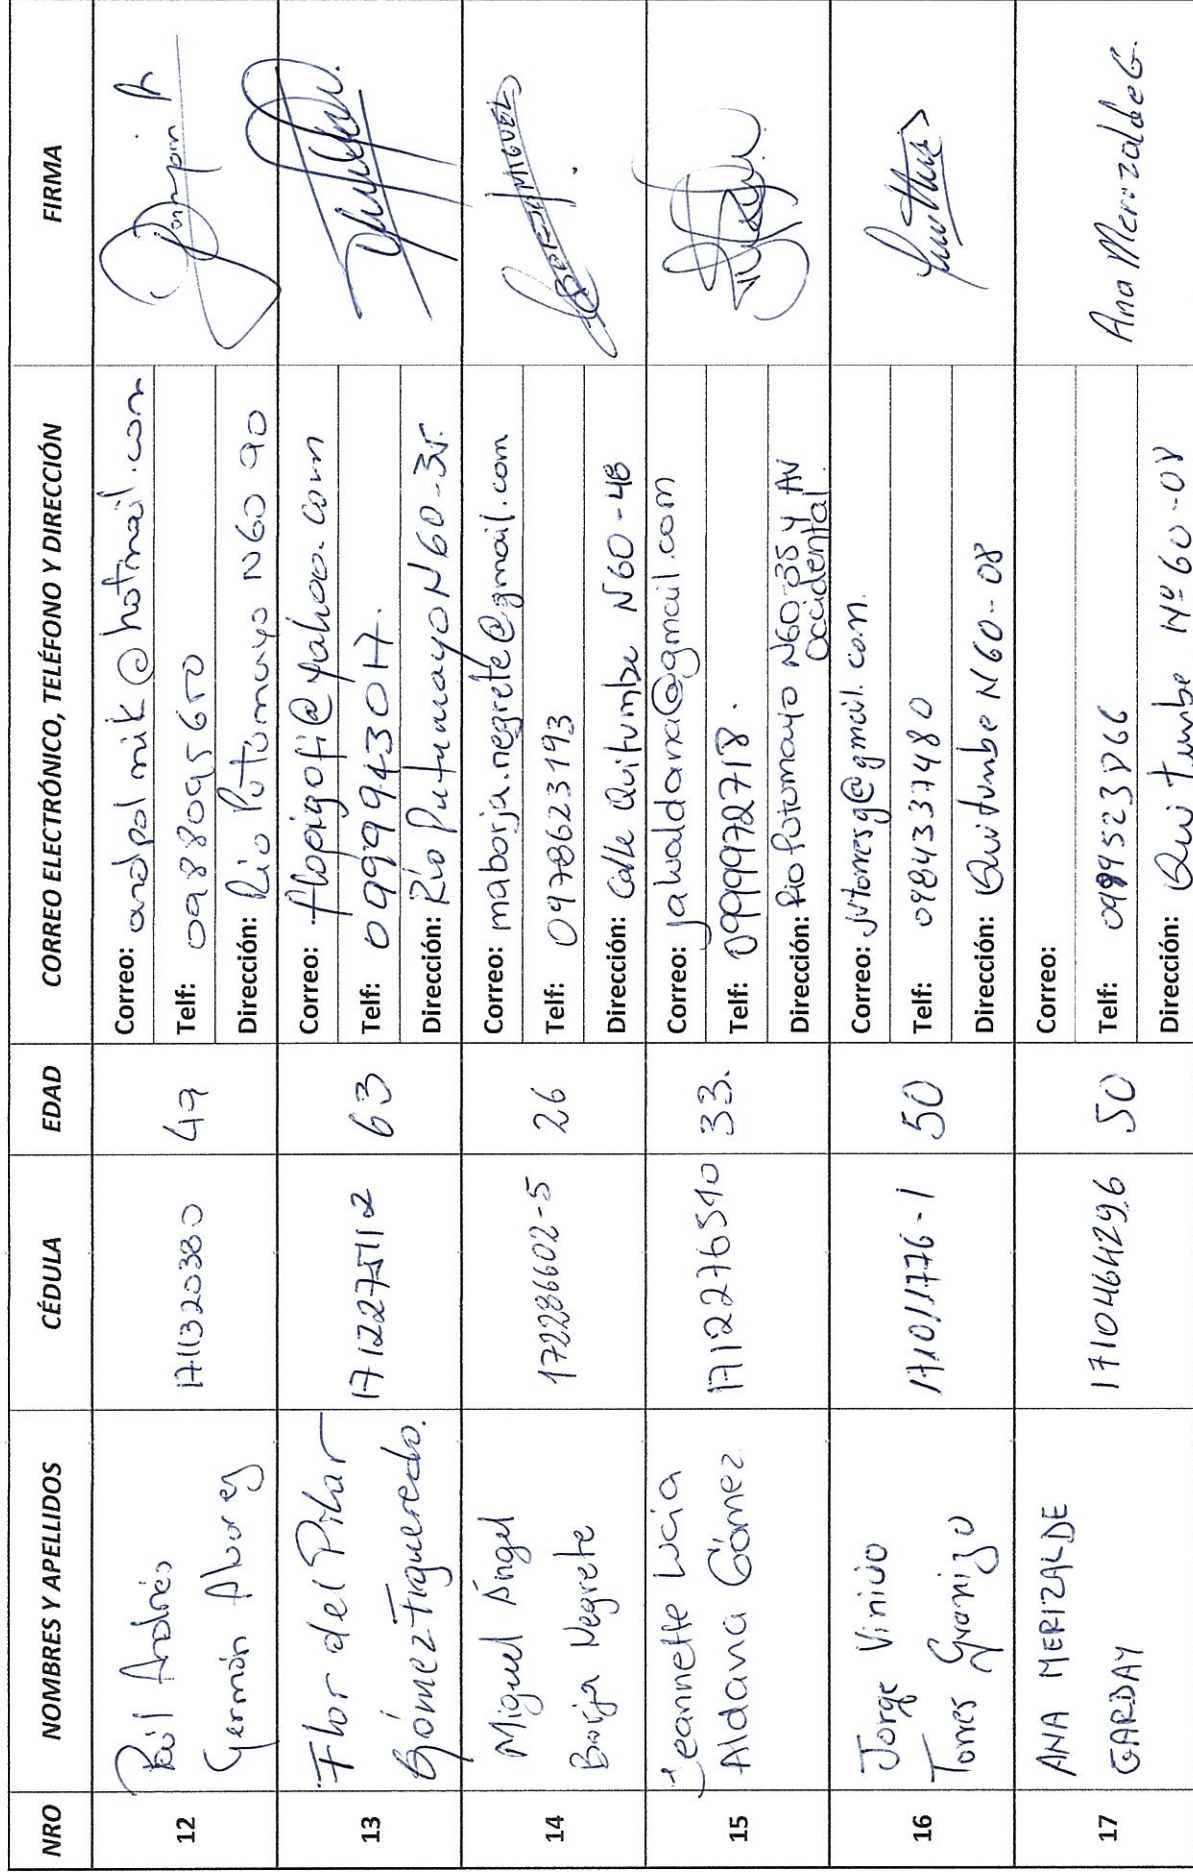 NRO NOMBRES Y APELLIDOS CÉDULA EDAD CORREO ELECTRÓNICO, TELÉFONO Y DIRECCIÓN FIRMA
12
Paúl Andrés
Germán
1711320380
47
Correo: andpolmik@hotmail.com
Telf: 0988095650
Dirección: Río Putumayo N60 90
13
Flor del Pilar
Gómez Figueredo.
1712275112
63
Correo: flopigofi@yahoo.com
Telf: 0999943017.
Dirección: Río Putumayo N60-35.
14
Miguel Ángel
Borja Negrete
172286602-5
26
Correo: maborja.negrete@gmail.com
Telf: 0978623193
Dirección: Calle Quitumbe N60-48
BORJA MIGUEL
15
Jeannette Lucía
Aldana Gómez
1712276540
33.
Correo: jaluvaldana@gmail.com
Telf: 0999972718.
Dirección: Rio Putumayo N60-35 y AV
Occidental
16
Jorge Vinicio
Torres Granizo
171011776-1
50
Correo: jvtorresg@gmail.com.
Telf: 0984337480
Dirección: Quitumbe N60-08
17
ANA MERIZALDE
GARDAY
1710464296
50
Correo:
Telf: 0999523866
Dirección: Quitumbe Nº 60-08
Ana Merizalde G.